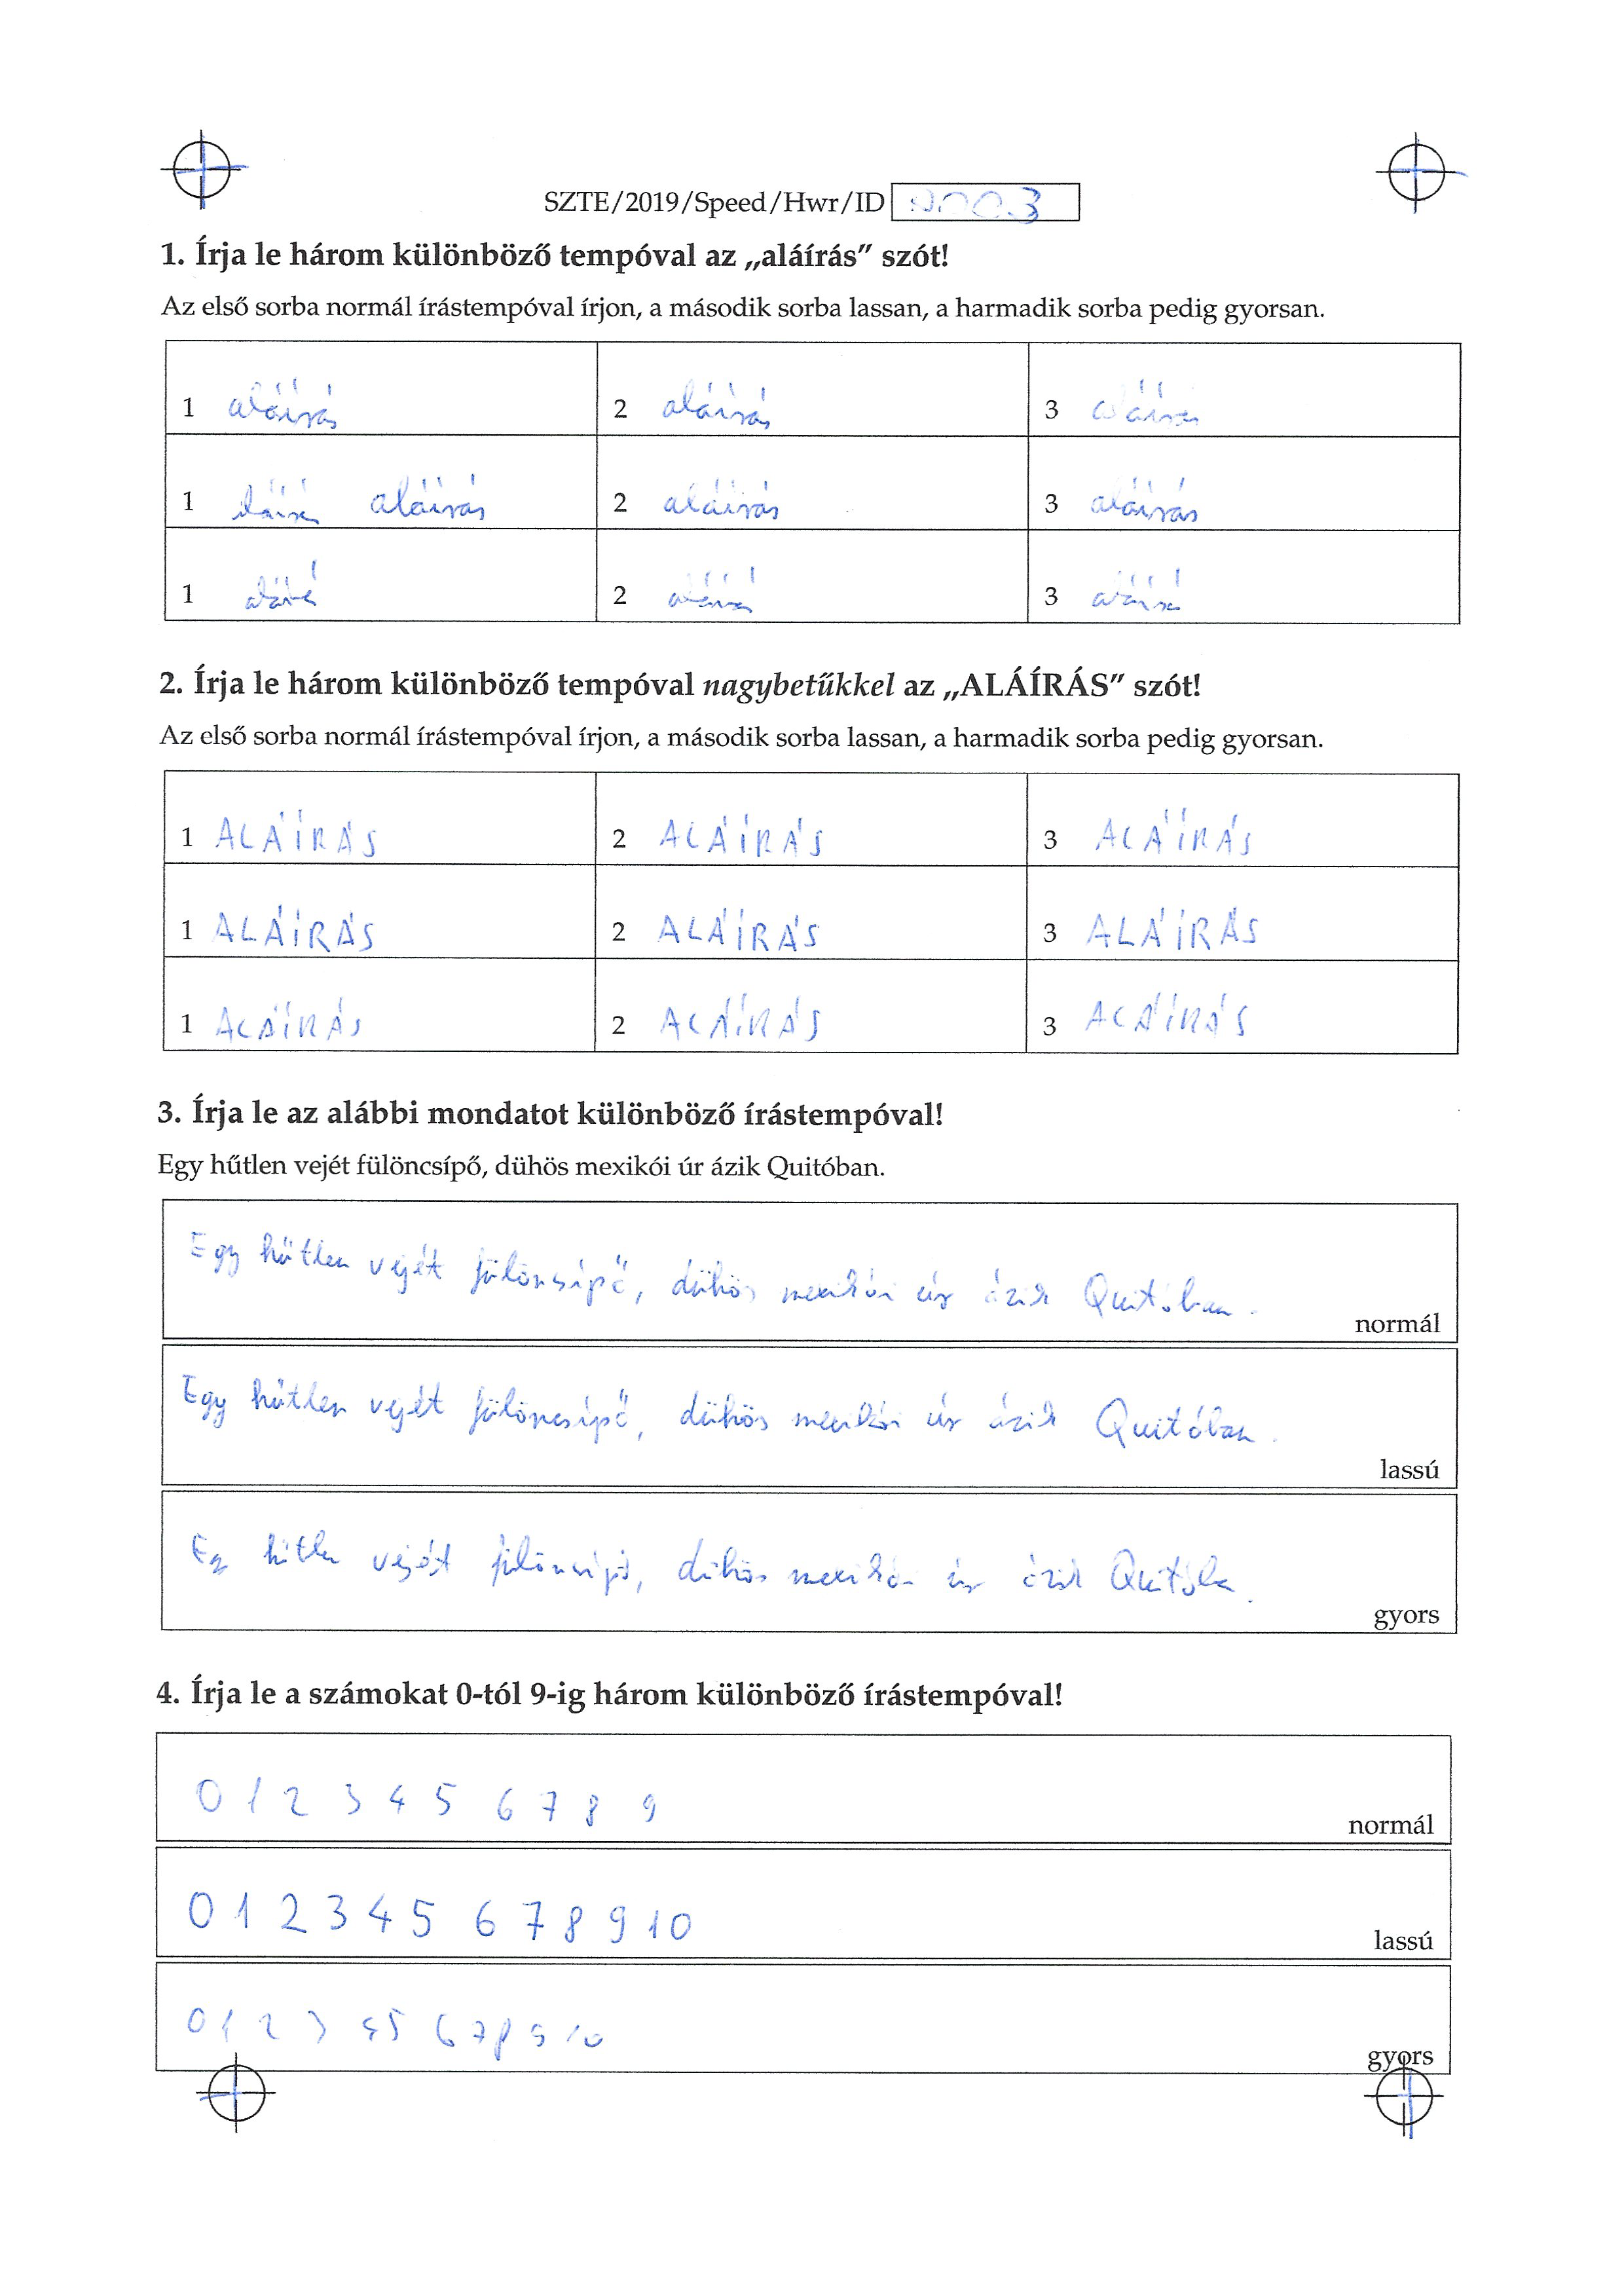 SZTE/2019/Speed/Hwr/ID
1. Írja le három különböző tempóval az „aláírás” szót!
Az első sorba normál írástempóval írjon, a második sorba lassan, a harmadik sorba pedig gyorsan.
1 aláírás 2 aláírás 3 aláírás
1 aláírás 2 aláírás 3 aláírás
1 aláírás 2 aláírás 3 aláírás
2. Írja le három különböző tempóval nagybetűkkel az „ALÁÍRÁS” szót!
Az első sorba normál írástempóval írjon, a második sorba lassan, a harmadik sorba pedig gyorsan.
1 ALÁÍRÁS 2 ALÁÍRÁS 3 ALÁÍRÁS
1 ALÁÍRÁS 2 ALÁÍRÁS 3 ALÁÍRÁS
1 ALÁÍRÁS 2 ALÁÍRÁS 3 ALÁÍRÁS
3. Írja le az alábbi mondatot különböző írástempóval!
Egy hűtlen vejét fülöncsípő, dühös mexikói úr ázik Quitóban.
Egy hűtlen vejét fülöncsípő, dühös mexikói úr ázik Quitóban.
normál
Egy hűtlen vejét fülöncsípő, dühös mexikói úr ázik Quitóban.
lassú
hűtlen vejét fülöncsípő, dühös mexikói úr ázik
gyors
4. Írja le a számokat 0-tól 9-ig három különböző írástempóval!
0 1 2 3 4 5 6 7 8 9
normál
0 1 2 3 4 5 6 7 8 9 10
lassú
0 1 2 3 4 5 6 7 8 9 10
gyors